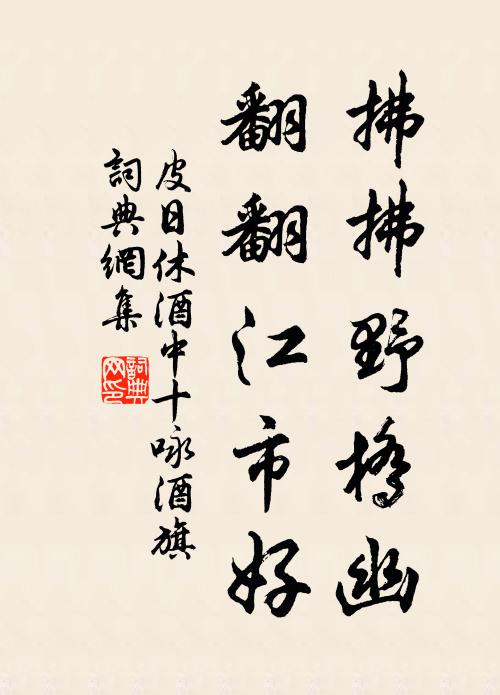 拂拂野橋幽
翻翻江市好
皮日休酒中十咏酒旗
詞典網集
詞典
网印